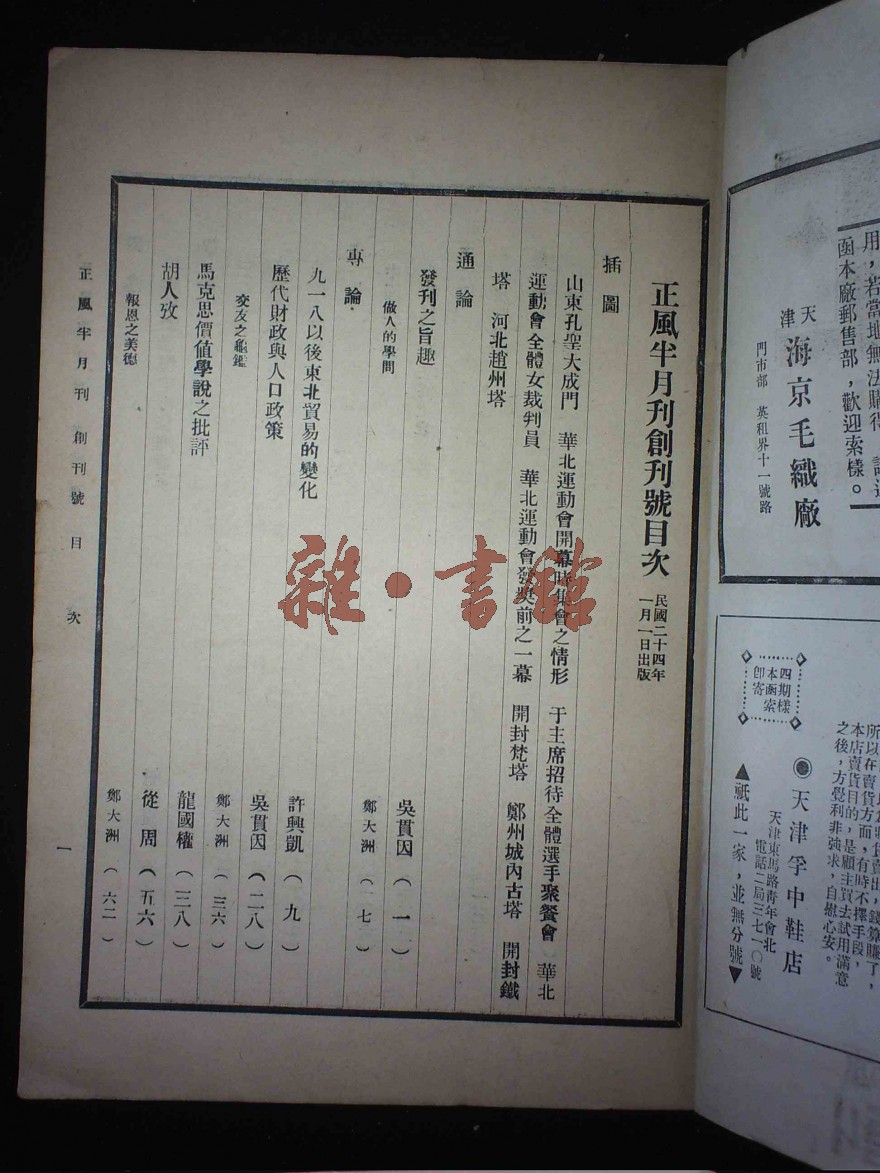 用，若當地無法購得
函本廠郵售部，歡迎索樣。
天津 海京毛織廠
門市部 英租界十一號路
四期樣
本函索
即寄
所以在賣貨方面，有時不擇手段，
本店賣貨目的，是顧主買去試用滿意
之後，方覺利非強求，自慰心安。
◉天津孚中鞋店
天津東馬路靑年會北
電話二局三七一〇號
▲祗此一家，並無分號▼
正風半月刊創刊號目次
民國二十四年
一月一日出版
插圖
山東孔聖大成門 華北運動會開幕時集會之情形 于主席招待全體選手聚餐會 華北
運動會全體女裁判員 華北運動會發奬前之一幕 開封梵塔 鄭州城內古塔 開封鐵
塔 河北趙州塔
通論
發刊之旨趣 吳貫因（一）
做人的學問 鄭大洲（一七）
專論
九一八以後東北貿易的變化 許興凱（九）
歷代財政與人口政策 吳貫因（二八）
交友之龜鑑 鄭大洲（三六）
馬克思價値學說之批評 龍國權（三八）
胡人攷 從周（五六）
報恩之美德 鄭大洲（六二）
正風半月刊 創刊號 目次
一
雜·書館